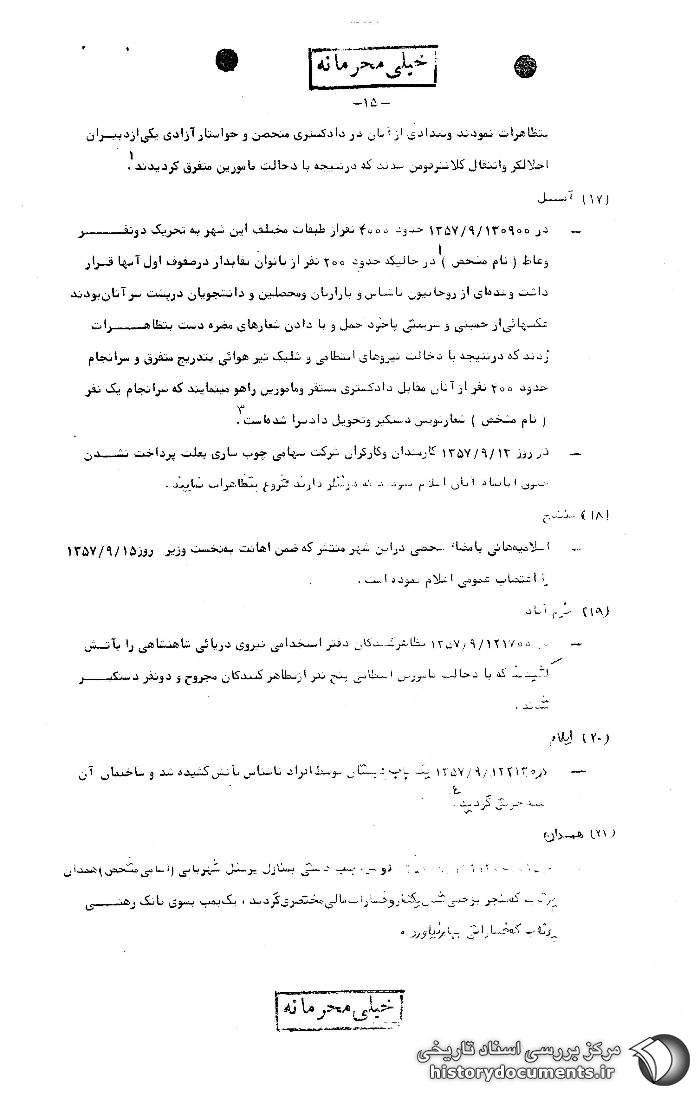 خیلی محرمانه
-۱۵-
بتظاهرات نمودند وتعدادی از آنان در دادگستری متحصن و خواستار آزادی یکی از دبیران
اخلالگر وانتقال کلانتر بومی شدند که درنتیجه با دخالت مامورین متفرق گردیدند ۱.
(۱۷)
در ۱۳۰۹۰۰/۹/۱۳۵۷ حدود ۴۰۰۰ نفر از طبقات مختلف این شهر به تحریک دونفر
وعاظ ( نام مشخص ) در حالیکه حدود ۲۰۰ نفر از بانوان نقابدار درصفوف اول آنها قرار
داشت وعدهای از روحانیون ناشناس و بازاریان ومحصلین و دانشجویان درپشت سر آنان بودند
عکسهائی از خمینی و شریعتی باخود حمل و با دادن شعارهای مضره دست بتظاهرات
زدند که درنتیجه با دخالت نیروهای انتظامی و شلیک تیر هوائی بتدریج متفرق و سرانجام
حدود ۲۰۰ نفر از آنان مقابل دادگستری مستقر ومامورین راهو مینمایند که سرانجام یک نفر
( نام مشخص ) شعارنویس دستگیر وتحویل دادسرا شده است ۳.
در روز ۱۳۵۷/۹/۱۲ کارمندان وکارگران شرکت سهامی چوب ساری بعلت پرداخت نشدن
حقوق آنان اعلام نمودند که درنظر دارند شروع بتظاهرات نمایند .
(۱۸) سنندج
اعلامیه هائی بامضاء شخصی دراین شهر منتشر که ضمن اهانت به نخست وزیر روز ۱۳۵۷/۹/۱۵
را اعتصاب عمومی اعلام نموده است .
(۱۹) خرم آباد
در ۱۲۱۷۰۰/۹/۱۳۵۷ تظاهرکنندگان دفتر استخدامی نیروی دریائی شاهنشاهی را بآتش
کشیدند که با دخالت مامورین انتظامی پنج نفر ازتظاهر کنندگان مجروح و دونفر دستگیر
شدند .
(۲۰) ایلام
در ۱۲۲۱۳۰/۹/۱۳۵۷ یک باب دبستان توسط افراد ناشناس بآتش کشیده شد و ساختمان آن
حریق گردید ۴.
(۲۱) همدان
بمب دستی بمنازل پرسنل شهربانی (اسامی مشخص) همدان
پرتاب که منجر بزخمی شدن یکنفر وخسارات مالی مختصری گردید ، یک بمب بسوی بانک رهنی
پرتاب که خساراتی ببار نیاورد .
خیلی محرمانه
مرکز بررسی اسناد تاریخی
historydocuments.ir